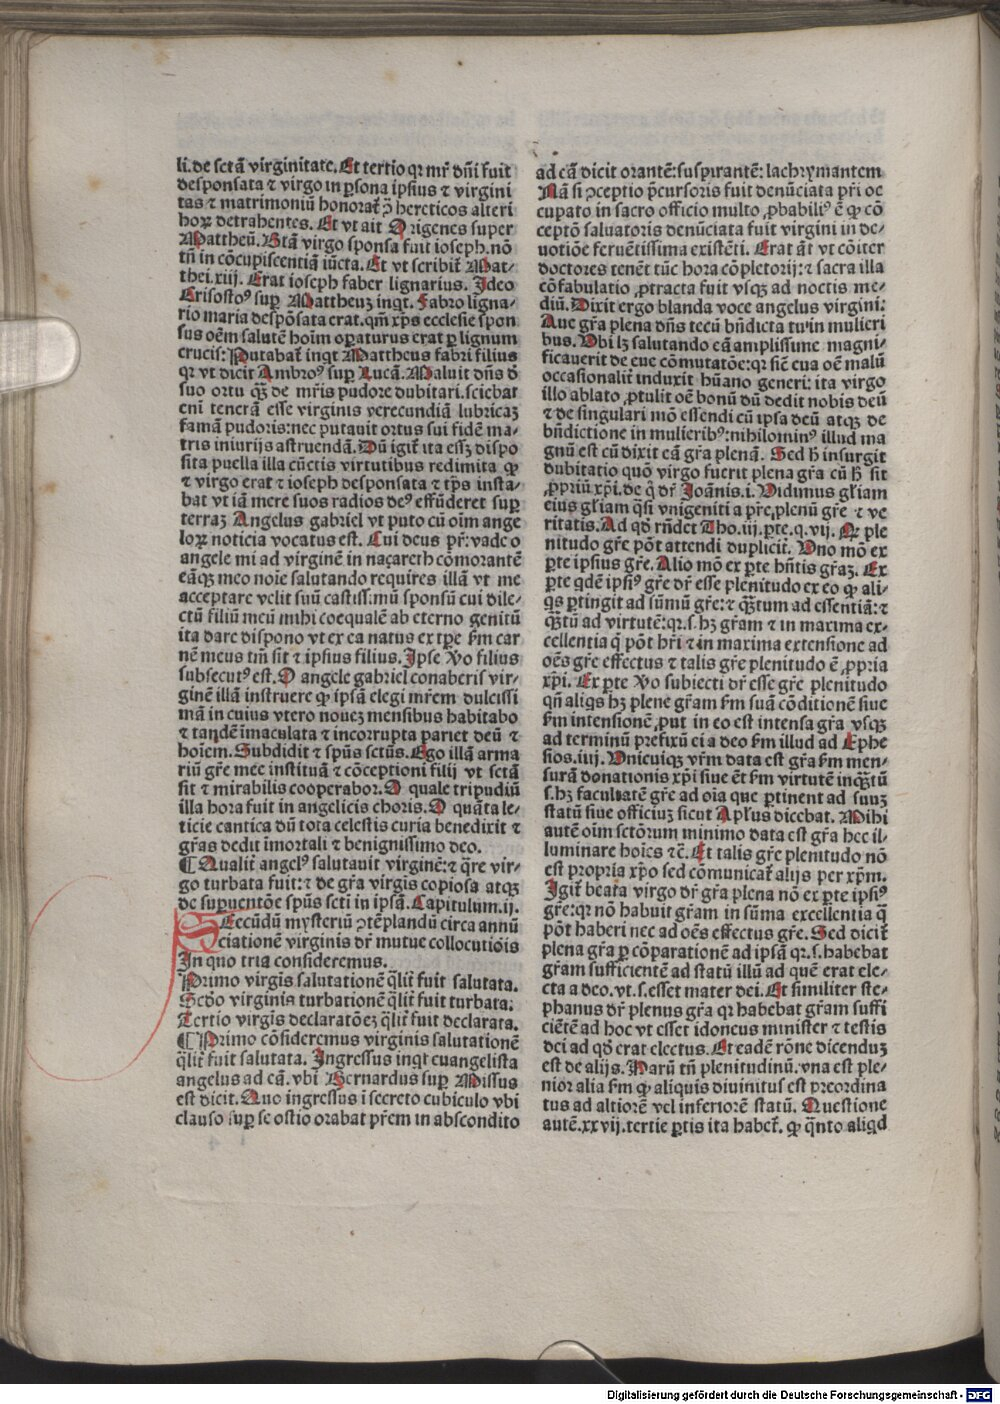 li. de sctā virginitate. Et tertio qꝛ mr̄ dn̄i fuit
desponsata ⁊ virgo in ꝑsona ipsius ⁊ virgini
tas ⁊ matrimoniū honorat᷑ ꝯ̄ hereticos alteri
hoꝝ detrahentes. Et vt ait Origenes super
Mattheū. Btā virgo sponsa fuit ioseph. nō
tn̄ in cōcupiscentiā iūcta. Et vt scribit᷑ Mat-
thei. xiij. Erat ioseph faber lignarius. Ideo
Crisostoꝰ suꝑ Mattheuꝫ inqt. Fabro ligna-
rio maria despōsata erat. qm̄ xp̄s ecclesie spon
sus oēm salutē hoīm oꝑaturus erat ꝑ lignum
crucis: Putabat᷑ inqt Mattheus fabri filius
qꝛ vt dicit Ambroꝰ suꝑ Lucā. Maluit dn̄s d̄
suo ortu qꝫ̄ de mr̄is pudore dubitari. sciebat
eni᷑ tenerā esse virginis verecundiā ⁊ lubricaꝫ
famā pudoris: nec putauit ortus sui fidē ma-
tris iniurijs astruendā. Dū igit᷑ ita essꝫ dispo
sita puella illa cūctis virtutibus redimita ꝙ
⁊ virgo erat ⁊ ioseph desponsata ⁊ tp̄s insta-
bat vt iā mere suos radios deꝰ effūderet suꝑ
terraꝫ Angelus gabriel vt puto cū oīm ange
loꝝ noticia vocatus est. Cui deus pr̄: vade o
angele mi ad virginē in naçareth cōmorantē
eāqꝫ meo noīe salutando requires illā vt me
acceptare velit suū castissimū sponsū cui dile-
ctū filiū meū mihi coequalē ab eterno genitū
ita dare dispono vt ex ea natus ex tꝑe ẜm car
nē meus tm̄ sit ⁊ ipsius filius. Ipse ṽo filius
subsecutꝰ est. O angele gabriel conaberis vir-
ginē illā instruere ꝙ ipsā elegi mr̄em dulcissi
mā in cuius vtero noueꝫ mensibus habitabo
⁊ tandē īmaculata ⁊ incorrupta pariet deū ⁊
hoīem. Subdidit ⁊ spūs sctūs. Ego illā arma
riū gr̄e mee instituā ⁊ cōceptioni filij vt sctā
sit ⁊ mirabilis cooperabor. O quale tripudiū
illa hora fuit in angelicis choris. O quāta le-
ticie cantica dū tota celestis curia benedixit ⁊
gr̄as dedit īmortali ⁊ benignissimo deo.
¶ Qualit᷑ angelꝰ salutauit virginē: ⁊ q̄re vir-
go turbata fuit: ⁊ de gr̄a virgīs copiosa atqꝫ
de suꝑuentōe spūs scti in ipsā. Capitulum. ij.
SEecūdū mysteriū ꝯtēplandū circa annū
ciationē virginis dr̄ mutue collocutiōis
In quo tria consideremus.
Primo virgīs salutationē q̄lit᷑ fuit salutata.
Scd̄o virginis turbationē q̄lit᷑ fuit turbata:
Tertio virgīs declaratōeꝫ q̄lit᷑ fuit declarata.
¶ Primo cōsideremus virginis salutationē
q̄lit᷑ fuit salutata. Ingressus inqt euangelista
angelus ad eā. vbi Bernardus suꝑ Missus
est dicit. Quo ingressus i secreto cubiculo vbi
clauso suꝑ se ostio orabat pr̄em in abscondito
ad eā dicit orantē: suspirantē: lachrymantem
Nā si ꝯceptio p̄cursoris fuit denūciata pr̄i oc
cupato in sacro officio multo ꝓbabiliꝰ ē ꝙ cō
ceptō saluatoris denūciata fuit virgini in de-
uotiōe feruētissima existēti. Erat āt vt cōiter
doctores tenēt tūc hora cōpletorij: ⁊ sacra illa
cōfabulatio ꝓtracta fuit vsqꝫ ad noctis me-
diū. Dixit ergo blanda voce angelus virgini:
Aue gr̄a plena dn̄s tecū bn̄dicta tu in mulieri
bus. Vbi lꝫ salutando eā amplissime magni-
ficauerit de eue cōmutatōe: qꝛ sic̄ eua oē malū
occasionalit᷑ induxit hūano generi: ita virgo
illo ablato ꝓtulit oē bonū dū dedit nobis deū
⁊ de singulari mō essendi cū ipsa deū atqꝫ de
bn̄dictione in mulieribꝰ: nihilominꝰ illud ma
gnū est cū dixit eā gr̄a plenā. Sed h̄ insurgit
dubitatio quō virgo fuerit plena gr̄a cū h̄ sit
ꝓpriū xp̄i. de q̄ dr̄ Joānis. i. Vidimus gl̄iam
eius gl̄iam q̄si vnigeniti a pr̄e, plenū gr̄e ⁊ ve
ritatis. Ad qd̄ rn̄det Tho. iij. ꝑte. q. vij. Qꝛ ple
nitudo gr̄e pōt attendi duplicit᷑. Vno mō ex
ꝑte ipsius gr̄e. Alio mō ex ꝑte hn̄tis gr̄aꝫ. Ex
ꝑte qdē ipsiꝰ gr̄e dr̄ esse plenitudo ex eo ꝙ ali-
qs ꝑtingit ad sūmū gr̄e: ⁊ qꝫ̄tum ad essentiā: ⁊
qꝫ̄tū ad virtutē: qꝛ. s. hꝫ gr̄am ⁊ in maxima ex-
cellentia q̄ pōt hr̄i ⁊ in maxima extensione ad
oēs gr̄e effectus ⁊ talis gr̄e plenitudo ē ꝓpria
xp̄i. Ex ꝑte ṽo subiecti dr̄ esse gr̄e plenitudo
qn̄ aliqs hꝫ plene gr̄am ẜm suā cōditionē siue
ẜm intensionē ꝓut in eo est intensa gr̄a vsqꝫ
ad terminū prefixū ei a deo ẜm illud ad Ephe
sios. iiij. Vnicuiqꝫ vr̄m data est gr̄a ẜm men-
surā donationis xp̄i siue ēt ẜm virtutē inqꝫ̄tū
s. hꝫ facultatē gr̄e ad oīa que ꝑtinent ad suuꝫ
statū siue officiuꝫ sicut Apl̄us dicebat. Mihi
autē oīm sctōrum minimo data est gr̄a hec il-
luminare hoīes ⁊c̄. Et talis gr̄e plenitudo nō
est propria xp̄o sed cōmunicat᷑ alijs per xp̄m.
Igit᷑ beata virgo dr̄ gr̄a plena nō ex ꝑte ipsiꝰ
gr̄e: qꝛ nō habuit gr̄am in sūma excellentia q̄
pōt haberi nec ad oēs effectus gr̄e. Sed dicit᷑
plena gr̄a ꝑ cōparationē ad ipsā qꝛ. s. habebat
gr̄am sufficientē ad statū illū ad quē erat ele-
cta a deo. vt. s. esset mater dei. Et similiter ste-
phanus dr̄ plenus gr̄a qꝛ habebat gr̄am suffi
ciētē ad hoc vt esset idoneus minister ⁊ testis
dei ad qd̄ erat electus. Et eadē rōne dicenduꝫ
est de alijs. Harū tn̄ plenitudinū. vna est ple-
nior alia ẜm ꝙ aliquis diuinitus est preordina
tus ad altiorē vel inferiorē statū. Questione
autē. xxvij. tertie ꝑtis ita habet᷑. ꝙ q̄nto aliqd
Digitalisierung gefördert durch die Deutsche Forschungsgemeinschaft - DFG